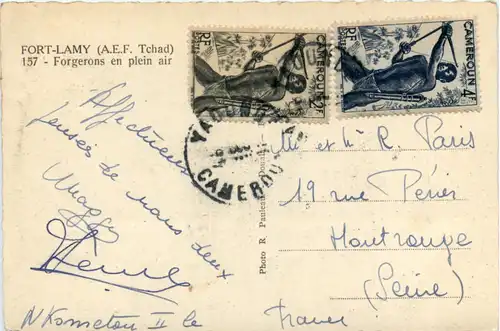 FORT-LAMY (A.E.F. Tchad)
157 - Forgerons en plein air
RF
CAMEROUN 2F
RF
POSTES
CAMEROUN 4F
CAMEROUN
Affectueuses
pensées de nous deux
Maggy
N'Kometou II le
Photo R. Pauleau Douala
M et Me R. Paris
19 rue Périer
Montrouge
(Seine)
France